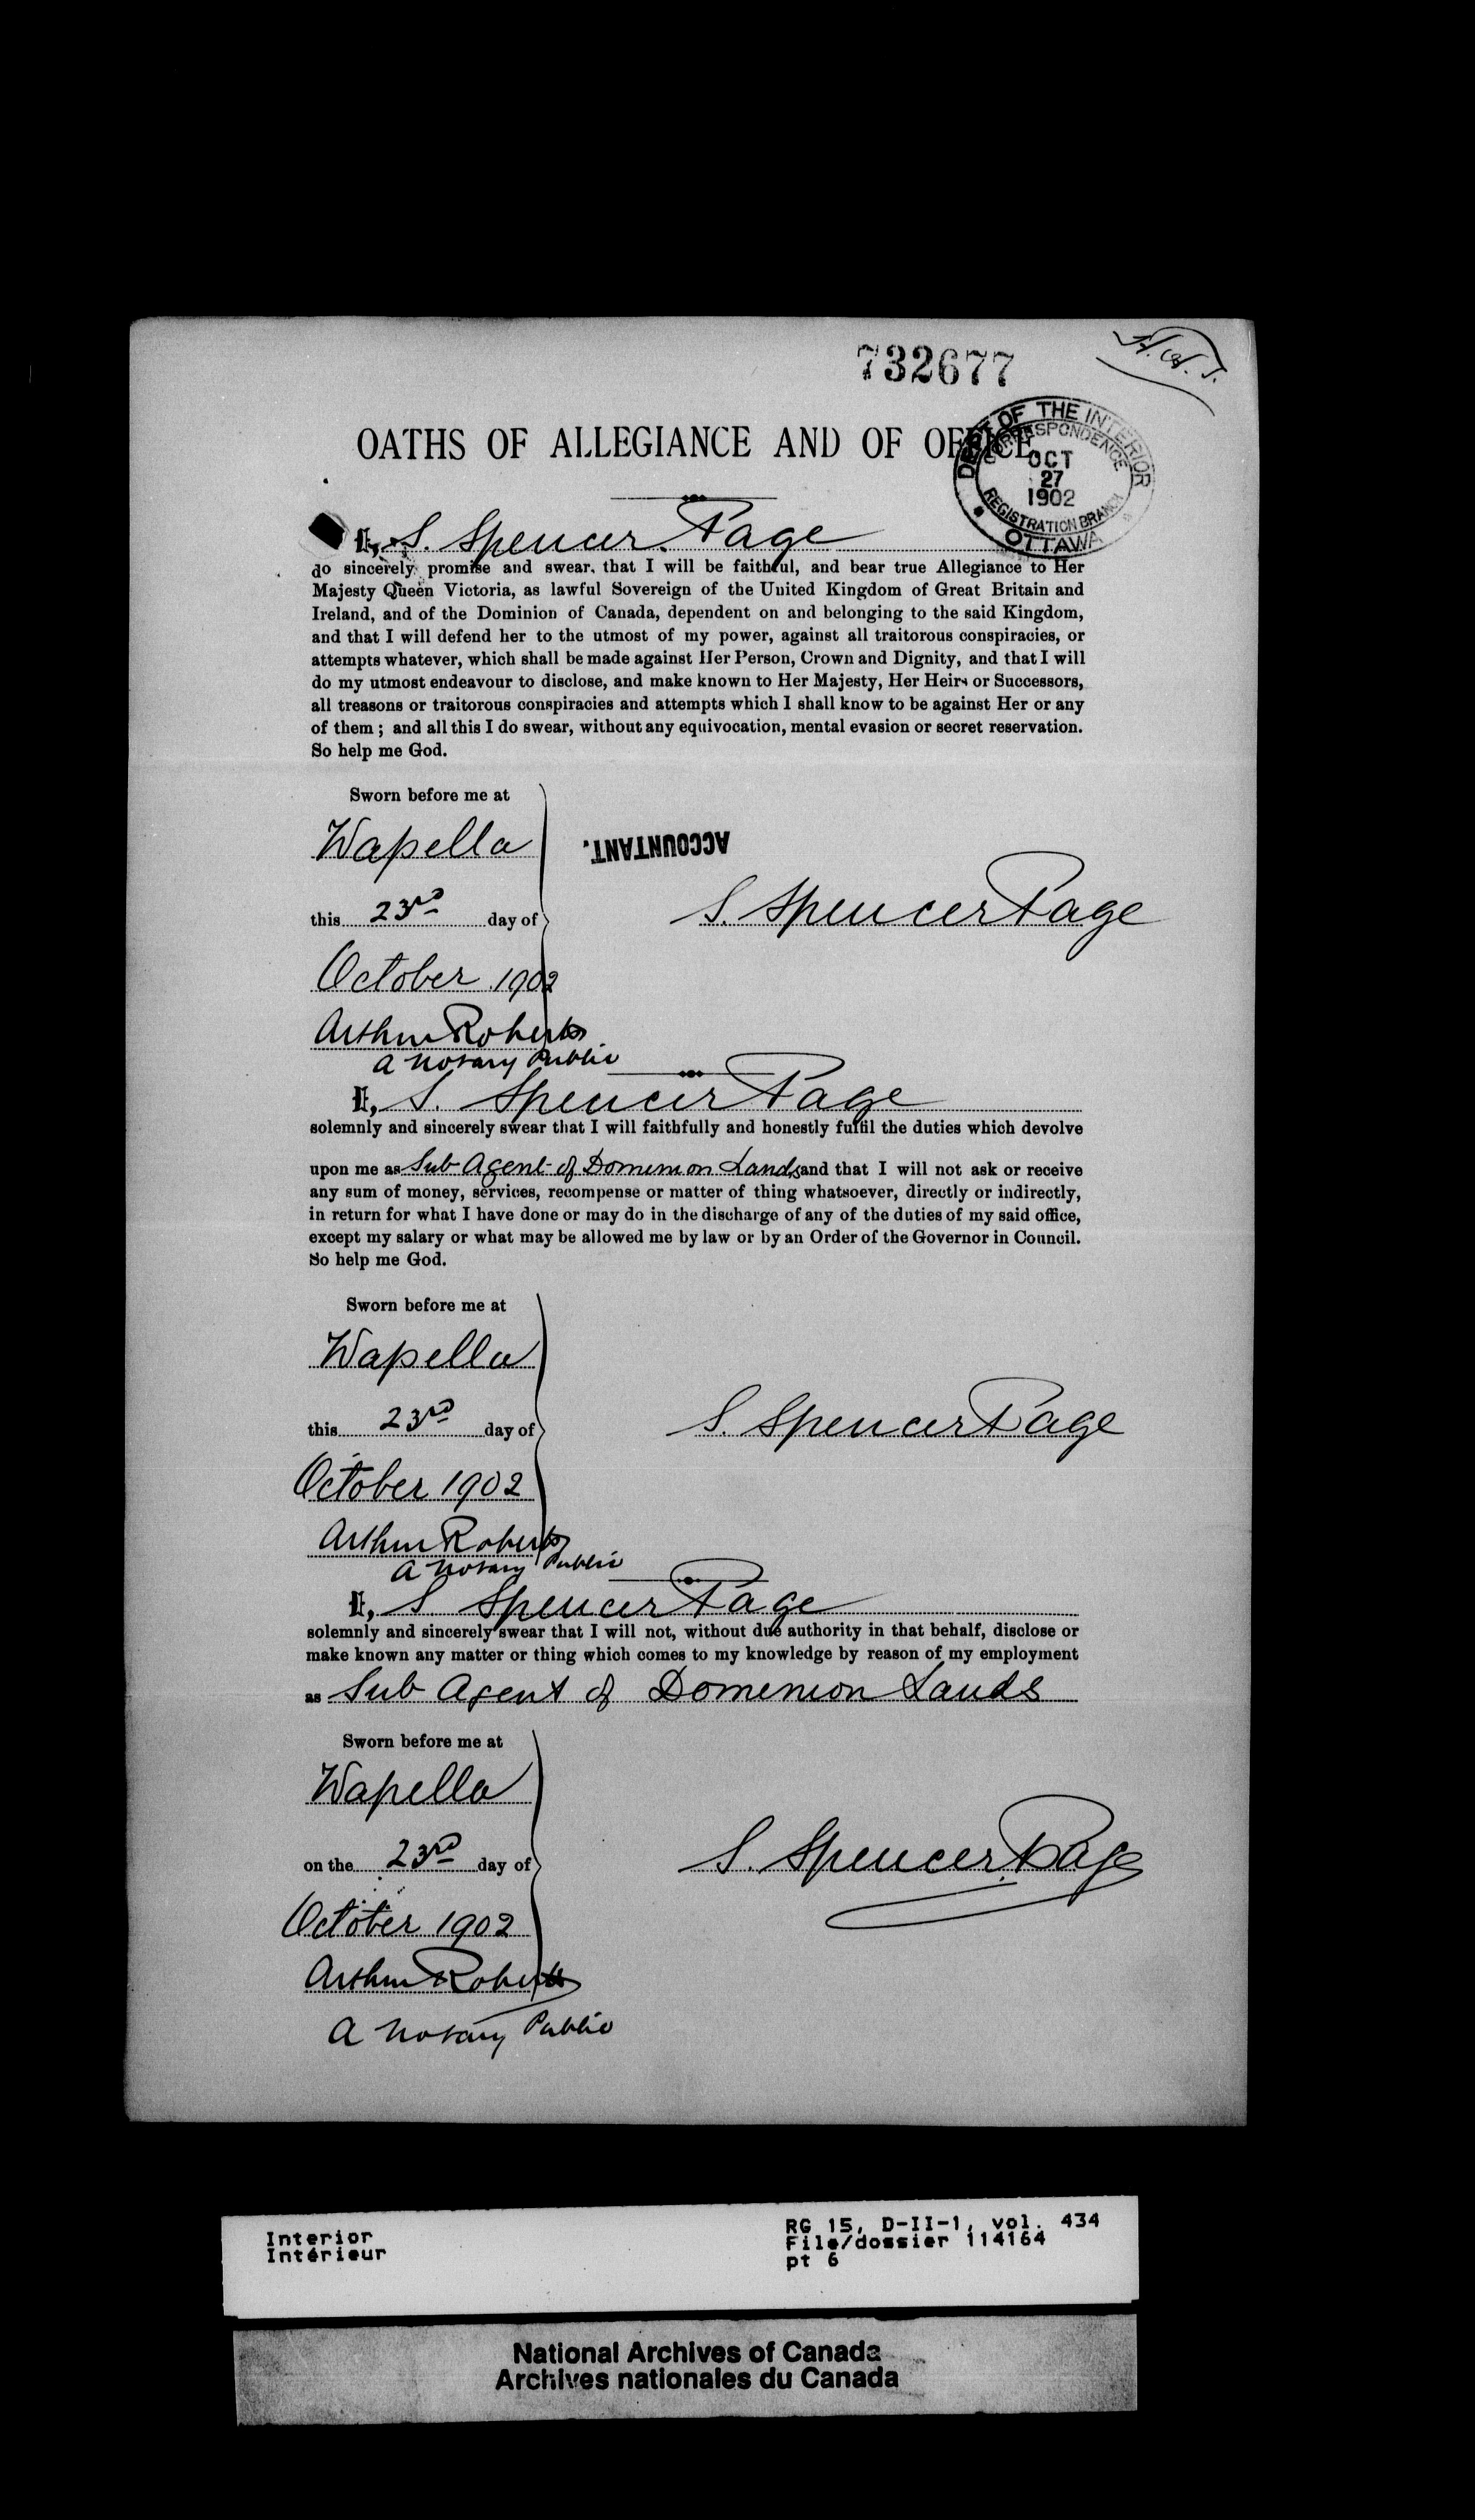 732677
OATHS OF ALLEGIANCE AND OF OFFICE.
DEPT OF THE INTERIOR
CORRESPONDENCE
OCT
27
1902
REGISTRATION BRANCH
OTTAWA
I, S. Spencer Page
do sincerely promise and swear, that I will be faithful, and bear true Allegiance to Her
Majesty Queen Victoria, as lawful Sovereign of the United Kingdom of Great Britain and
Ireland, and of the Dominion of Canada, dependent on and belonging to the said Kingdom,
and that I will defend her to the utmost of my power, against all traitorous conspiracies, or
attempts whatever, which shall be made against Her Person, Crown and Dignity, and that I will
do my utmost endeavour to disclose, and make known to Her Majesty, Her Heirs or Successors,
all treasons or traitorous conspiracies and attempts which I shall know to be against Her or any
of them ; and all this I do swear, without any equivocation, mental evasion or secret reservation.
So help me God.
Sworn before me at
Wapella
ACCOUNTANT.
this 23rd day of
S. Spencer Page
October 1902
Arthur Roberts
a Notary Public
I, S. Spencer Page
solemnly and sincerely swear that I will faithfully and honestly fulfil the duties which devolve
upon me as Sub Agent of Dominion Lands and that I will not ask or receive
any sum of money, services, recompense or matter of thing whatsoever, directly or indirectly,
in return for what I have done or may do in the discharge of any of the duties of my said office,
except my salary or what may be allowed me by law or by an Order of the Governor in Council.
So help me God.
Sworn before me at
Wapella
this 23rd day of
S. Spencer Page
October 1902
Arthur Roberts
a Notary Public
I, S. Spencer Page
solemnly and sincerely swear that I will not, without due authority in that behalf, disclose or
make known any matter or thing which comes to my knowledge by reason of my employment
as Sub Agent of Domenion Lands
Sworn before me at
Wapella
on the 23rd day of
S. Spencer Page
October 1902
Arthur Roberts
a Notary Public
Interior
Intérieur
RG 15, D-II-1, vol. 434
File/dossier 114164
pt 6
National Archives of Canada
Archives nationales du Canada